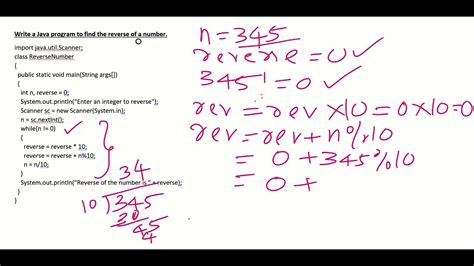 Write a Java program to find the reverse of a number.
import java.util.Scanner;
class ReverseNumber
{
public static void main(String args[])
{
int n, reverse = 0;
System.out.println("Enter an integer to reverse");
Scanner sc = new Scanner(System.in);
n = sc.nextInt();
while(n != 0)
{
reverse = reverse * 10;
reverse = reverse + n%10;
n = n/10;
}
System.out.println("Reverse of the number is " + reverse);
}
}
34
10 ) 345
30
45
4
n = 345
reverse = 0 ✓
345 != 0 ✓
rev = rev X 10 = 0X10=0
rev = rev + n % 10
= 0 + 345 % 10
= 0 +